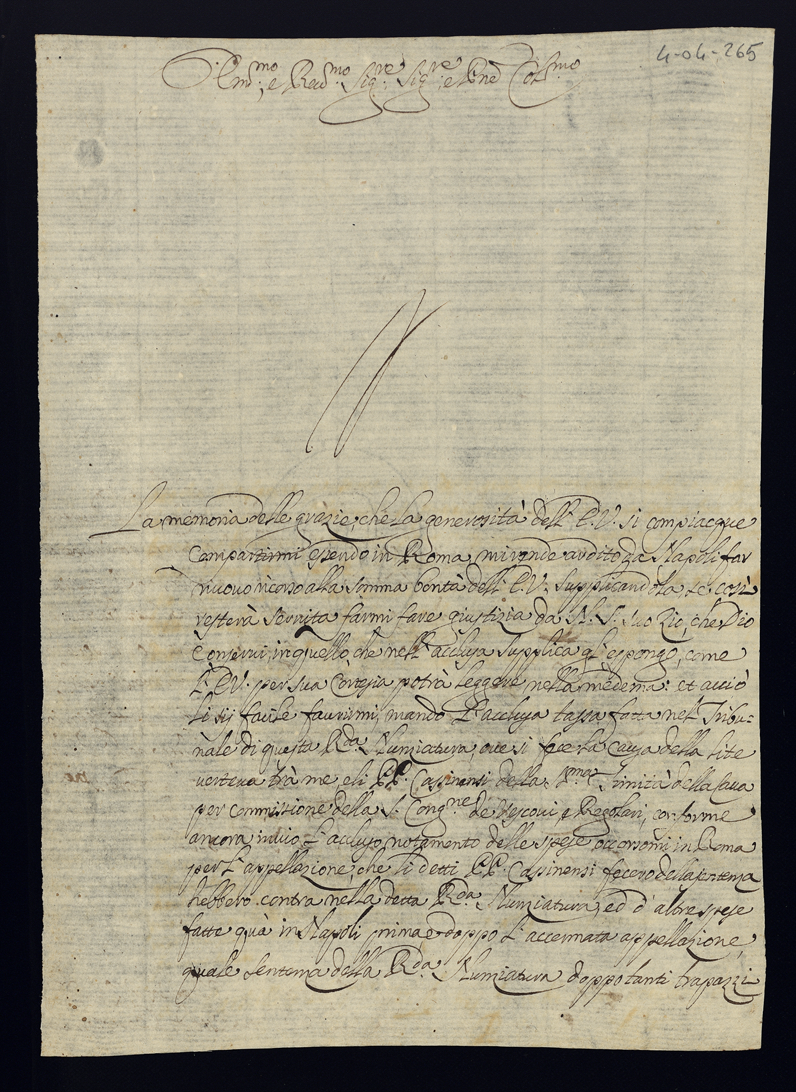 4-04-265
Em.mo, e Reu.mo Sig.re Sig.re, e Pne Col.mo
La memoria delle grazie, che la generosità dell' E.V. si compiacque
compartirmi essendo in Roma, mi rende ardito da Napoli far
nuouo ricorso alla somma bontà dell' E.V. supplicandola se così
resterà seruita farmi fare giustizia da N. S. suo Zio, che Dio
conserui, in quello, che nell' acclusa supplica gl' espongo, come
l' E.V. per sua Cortesia potrà leggere nella medema: et acciò
li sij facile fauorirmi, mando l' acclusa tassa fatta nel Tribu-
nale di questa R.da Nunziatura, oue si fece la Causa della lite
verteua trà me, e li PP. Casinensi della S.ma Trinità della Caua
per commissione della S. Cong.ne de Vescoui, e Regolari, conforme
ancora inuio l' accluso notamento delle spese occorsomi in Roma
per l' appellazione, che li detti PP. Casinensi fecero della sentenza
hebbero contra nella detta R.da Nunziatura, ed d' altre spese
fatte quà in Napoli prima, e doppo l' accennata appellazione,
quale sentenza della R.da Nunziatura doppo tanti trapazzi